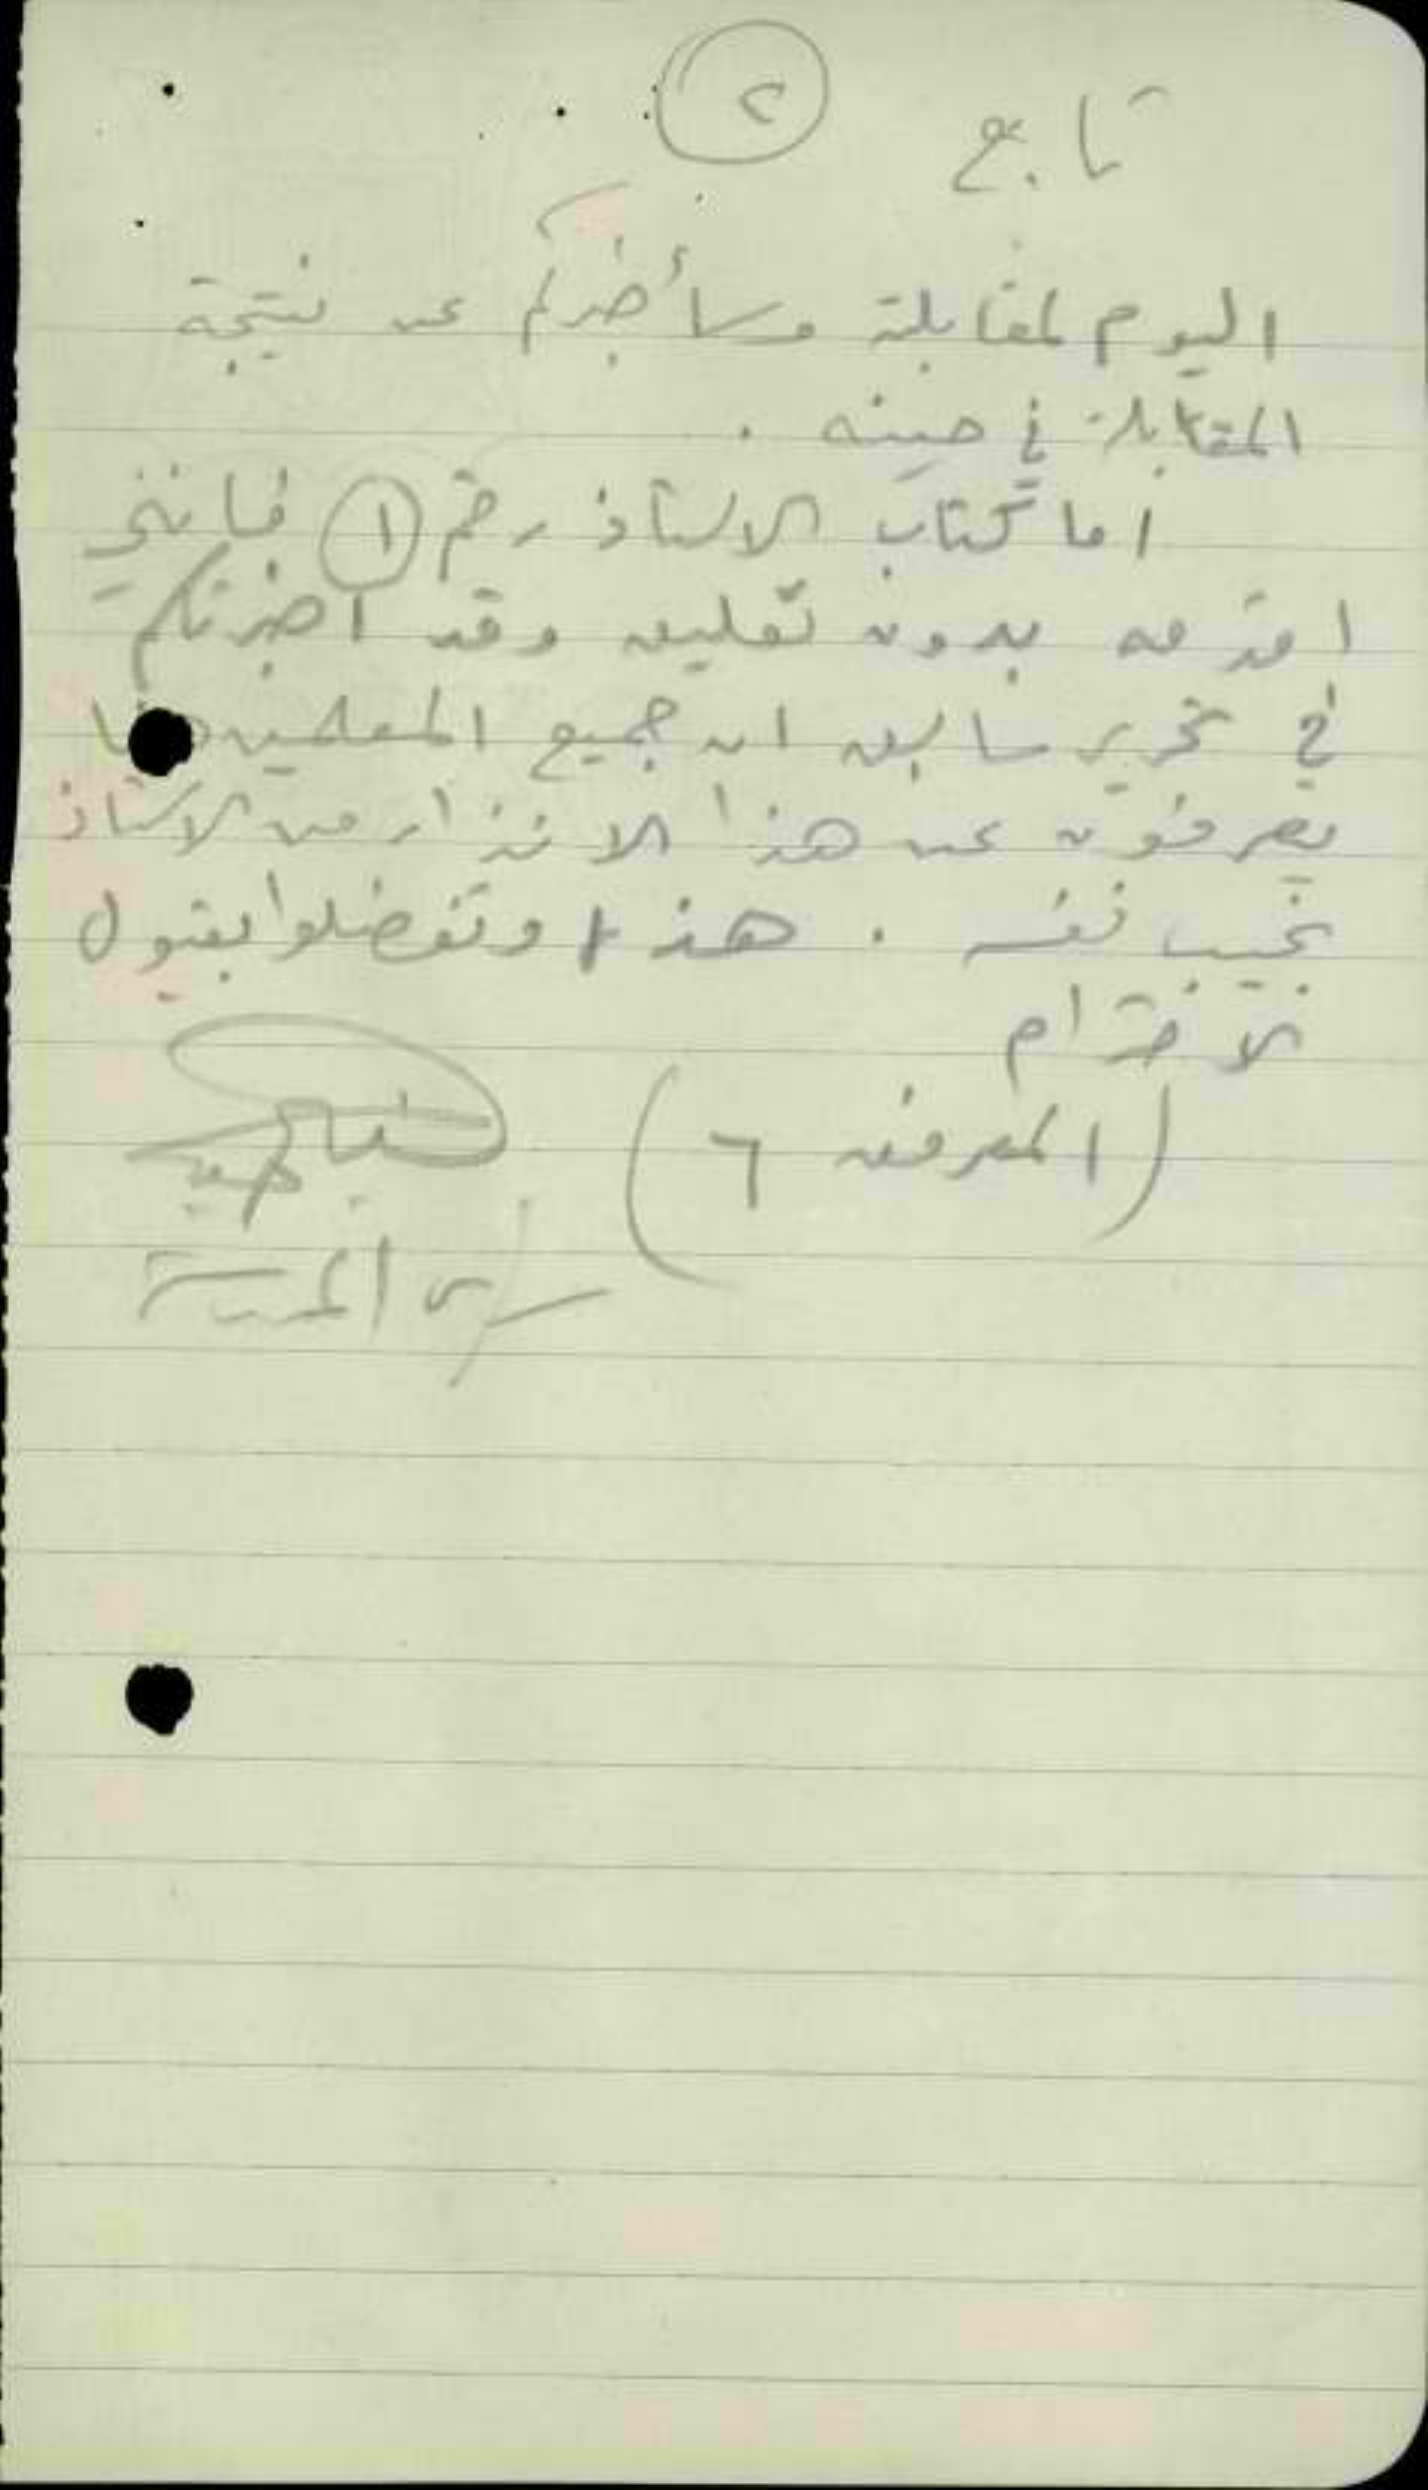 تابع ٢
اليوم لمقابلة وسأخبركم عن نتيجة
المقابلة في حينه .
اما كتاب الاستاذ رقم ١ فانني
اقدمه بدون تعليق وقد اخبرتكم
في تحرير سابق ان جميع المعلمين هنا
يعرفون عن هذا الانذار من الاستاذ
نجيب نفسه . هذا وتفضلوا بقبول
الاحترام
(المرفق ٦)
المدرسة